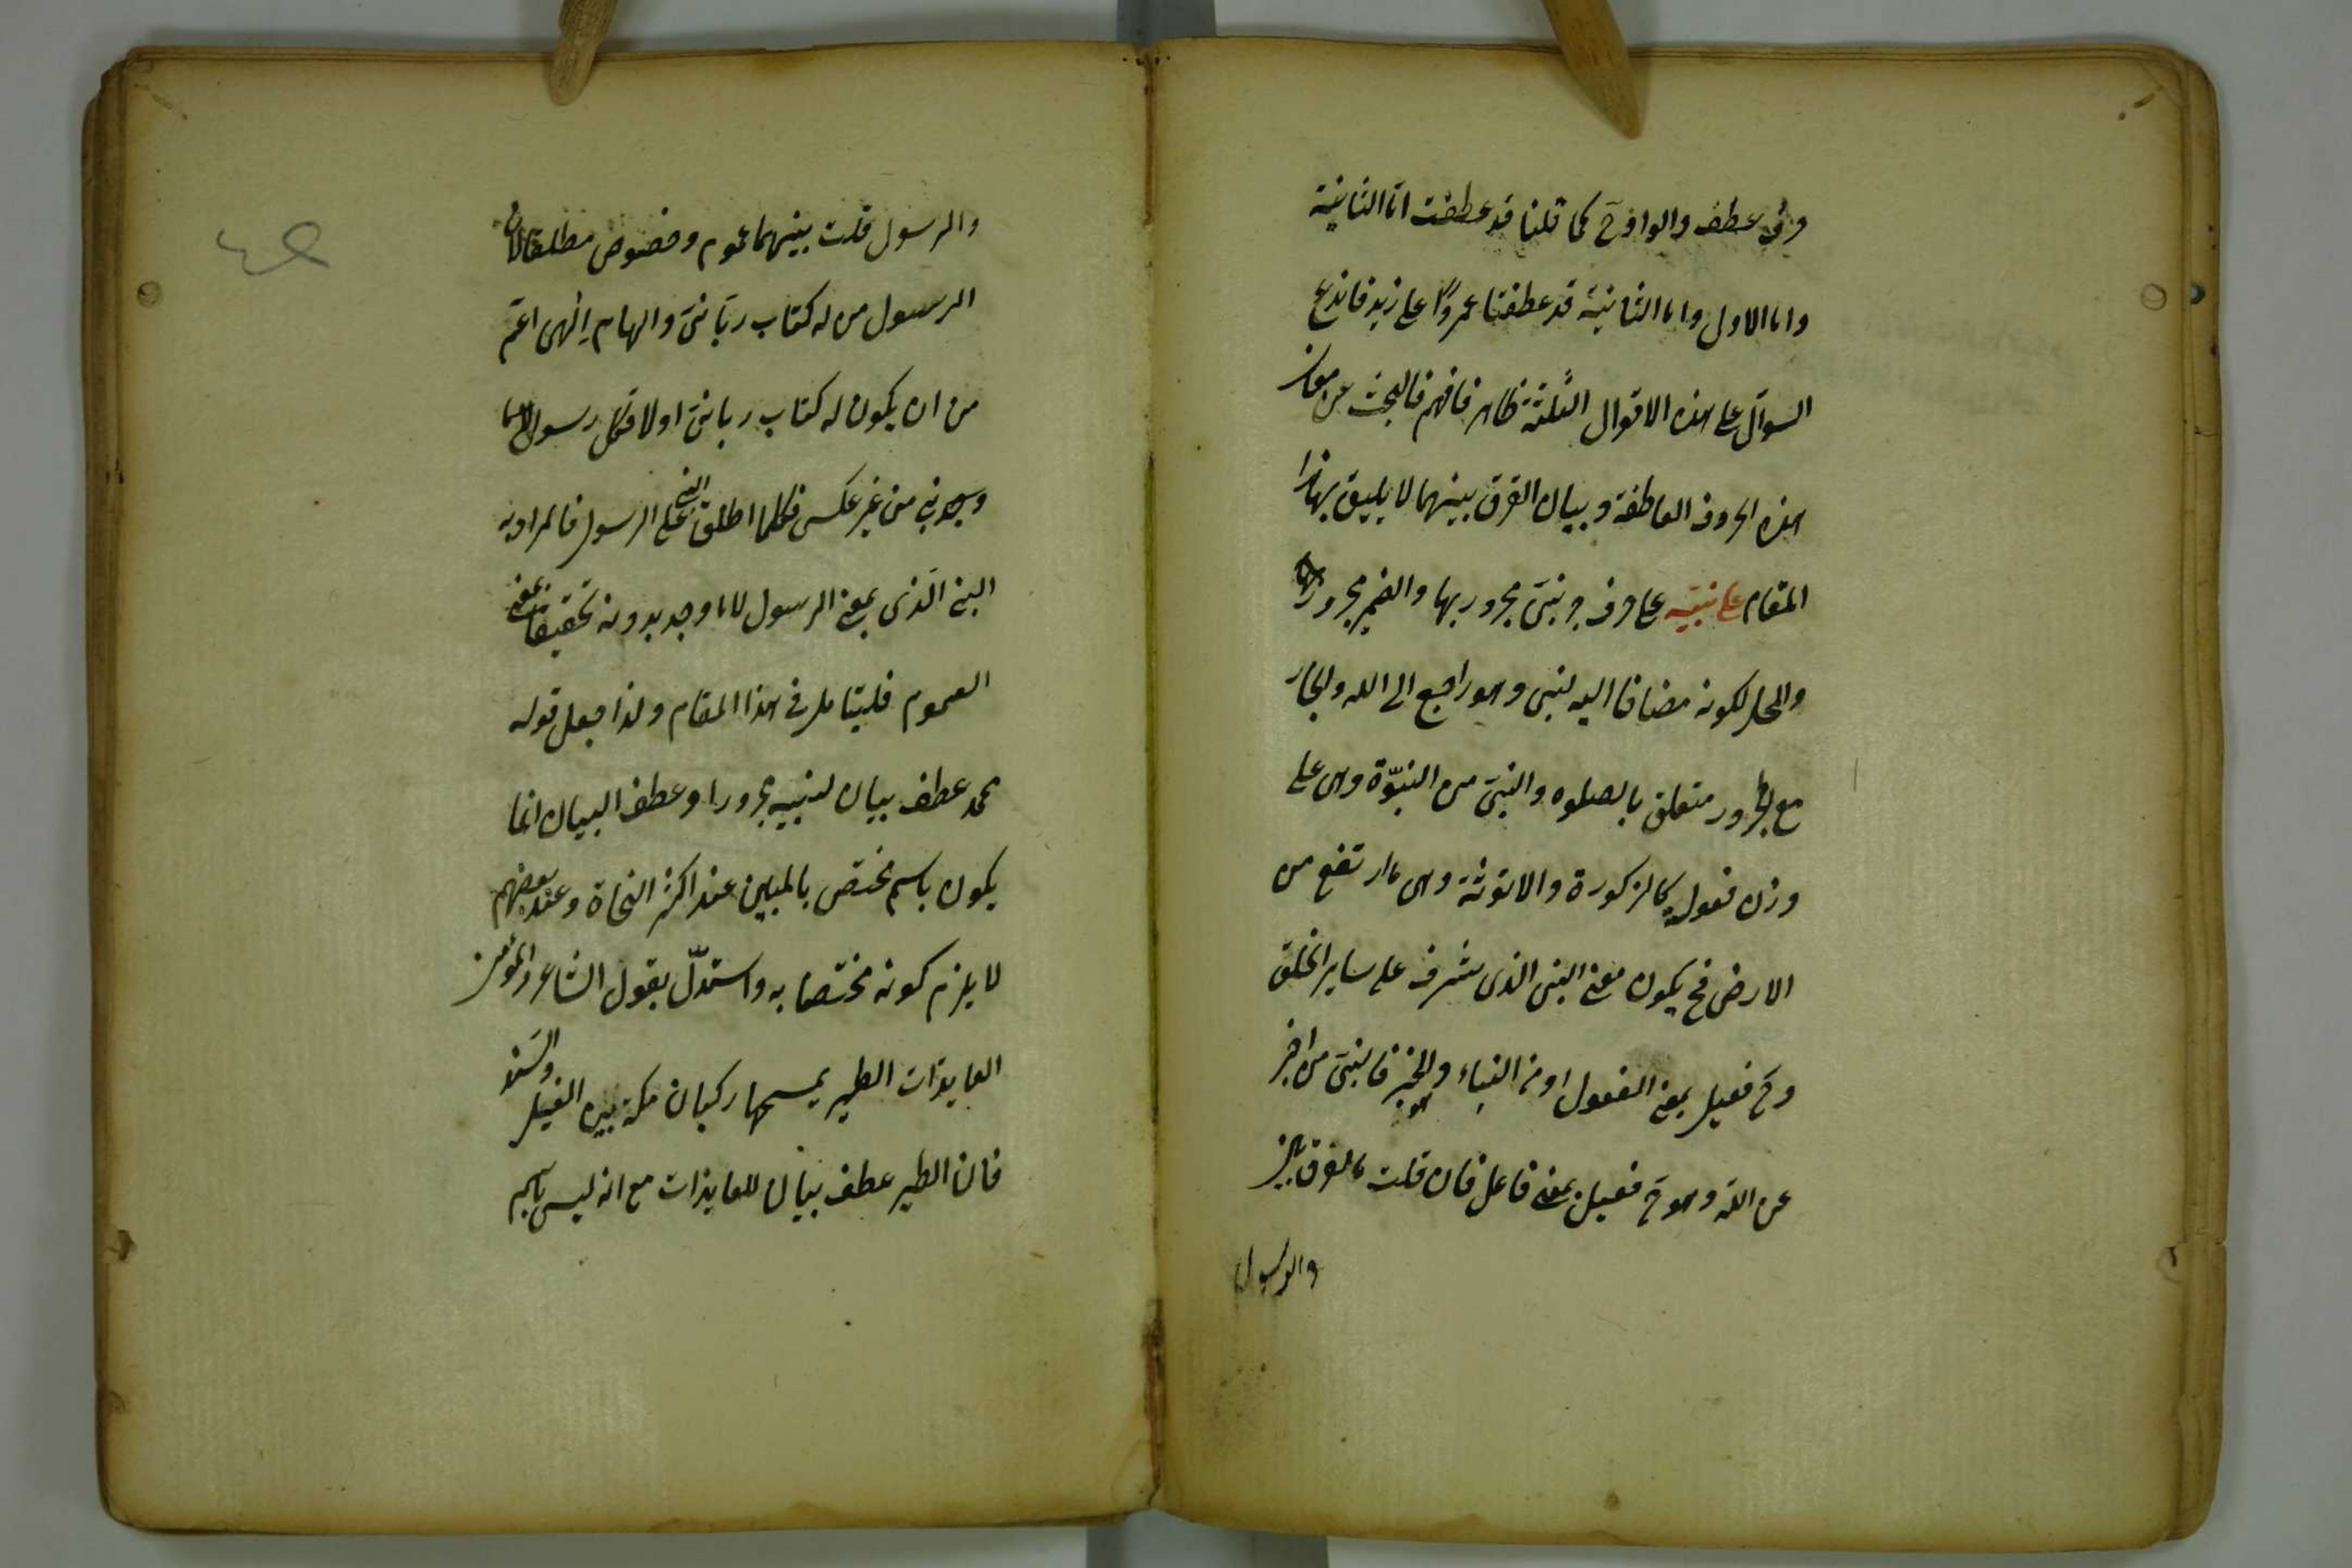 وفى عطف والواو ح كما قلنا قد عطفت اما الثانية
واما الاول واما الثانية قد عطفنا عمروًا على زيد فاندفع
السوال على هذه الاقوال الثلثة ظاهر فافهم فالبحث عن معان
هذه الحروف العاطفة وبيان الفرق بينهما لا يليق بهذا
المقام على نبيه على حرف جر نبى مجرور بها والضمير مجرور
والمحل لكونه مضافا اليه لنبى وهو راجع الى الله والجار
مع المجرور متعلق بالصلوة والنبى من النبوّة وهى على
وزن فعولة كالزكورة والانوثة وهى ما ارتفع من
الارض فح يكون معنى النبى الذى شرف على ساير الخلق
وح فعيل بمعنى المفعول او من النباء وهو الخبر فالنبى من اخبر
عن الله وهو ح فعيل بمعنى فاعل فان قلت ما الفرق بين
والرسول
والرسول قلت بينهما عموم وخصوص مطلقا لان
الرسول من له كتاب ربانى والهام الهى اعم
من ان يكون له كتاب ربانى اولا فكل رسول
نبى من غير عكس فكلما اطلق النبى على الرسول فالمراد به
النبى الذى بمعنى الرسول لا ما وجد بدونه تحقيقا لمعنى
العموم فليتامل فى هذا المقام ولذا جعل قوله
محمد عطف بيان لنبيه مجرورا وعطف البيان انما
يكون باسم مختص بالمبين عند اكثر النحاة وعند بعضهم
لا يلزم كونه مختصا به واستدلّ بقول الشاعر والمؤمن
العايذات الطير يمسحها ركبان مكة بين الغيل والسند
فان الطير عطف بيان للعايذات مع انه ليس باسم